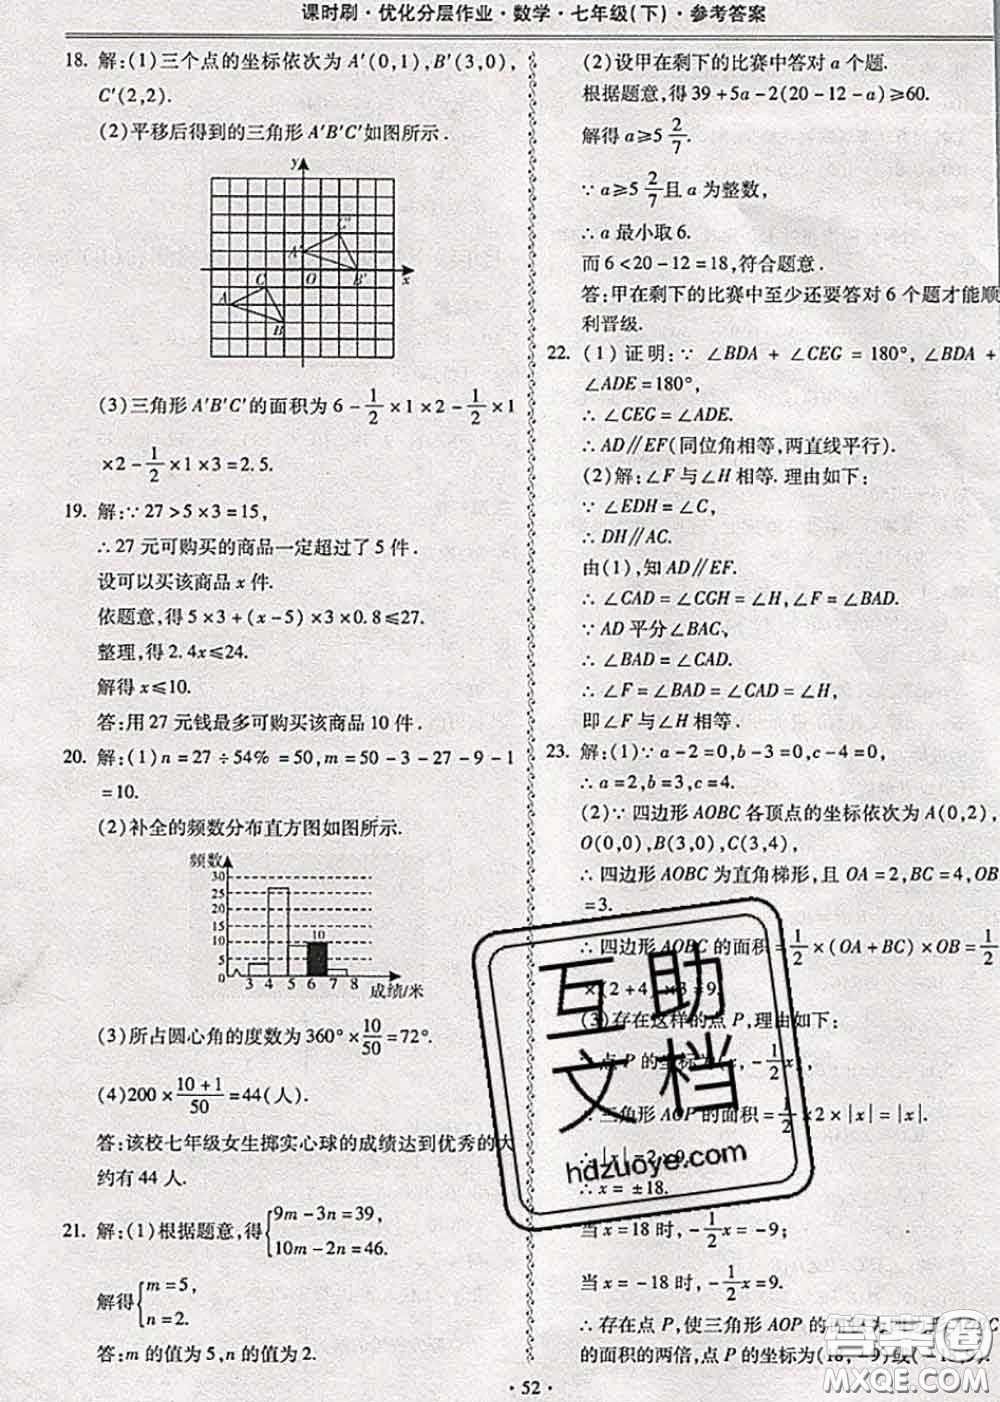 课时刷·优化分层作业·数学·七年级(下)·参考答案
18. 解:(1)三个点的坐标依次为 A′(0,1),B′(3,0),
C′(2,2).
(2)平移后得到的三角形 A′B′C′如图所示.
y
C′
A′
O
B′
x
C
A
B
(3)三角形 A′B′C′的面积为 6 − 1/2 ×1×2 − 1/2 ×1
×2 − 1/2 ×1×3 = 2.5.
19. 解:∵27>5×3=15,
∴27 元可购买的商品一定超过了 5 件.
设可以买该商品 x 件.
依题意,得 5×3+(x−5)×3×0.8≤27.
整理,得 2.4x≤24.
解得 x≤10.
答:用 27 元钱最多可购买该商品 10 件.
20. 解:(1)n=27÷54%=50,m=50−3−27−9−1
=10.
(2)补全的频数分布直方图如图所示.
频数
30
25
20
15
10
5
10
3 4 5 6 7 8 成绩/米
(3)所占圆心角的度数为 360°× 10/50 =72°.
(4)200× (10+1)/50 =44(人).
答:该校七年级女生掷实心球的成绩达到优秀的大
约有 44 人.
21. 解:(1)根据题意,得{9m−3n=39,
10m−2n=46.
解得{m=5,
n=2.
答:m 的值为 5,n 的值为 2.
(2)设甲在剩下的比赛中答对 a 个题.
根据题意,得 39+5a−2(20−12−a)≥60.
解得 a≥5 2/7.
∵a≥5 2/7 且 a 为整数,
∴a 最小取 6.
而 6<20−12=18,符合题意.
答:甲在剩下的比赛中至少还要答对 6 个题才能顺
利晋级.
22. (1)证明:∵∠BDA+∠CEG=180°,∠BDA+
∠ADE=180°,
∴∠CEG=∠ADE.
∴AD∥EF(同位角相等,两直线平行).
(2)解:∠F 与∠H 相等. 理由如下:
∵∠EDH=∠C,
∴DH∥AC.
由(1),知 AD∥EF.
∴∠CAD=∠CGH=∠H,∠F=∠BAD.
∵AD 平分∠BAC,
∴∠BAD=∠CAD.
∴∠F=∠BAD=∠CAD=∠H,
即∠F 与∠H 相等.
23. 解:(1)∵a−2=0,b−3=0,c−4=0,
∴a=2,b=3,c=4.
(2)∵四边形 AOBC 各顶点的坐标依次为 A(0,2),
O(0,0),B(3,0),C(3,4),
∴四边形 AOBC 为直角梯形,且 OA=2,BC=4,OB
=3.
∴四边形 AOBC 的面积= 1/2 ×(OA+BC)×OB= 1/2
×(2+4)×3=9.
(3)存在这样的点 P,理由如下:
点 P 的坐标为(x,− 1/2 x),
∴三角形 AOP 的面积= 1/2 ×2×|x|=|x|.
∴|x|=2×9.
∴x=±18.
当 x=18 时,− 1/2 x=−9;
当 x=−18 时,− 1/2 x=9.
∴存在点 P,使三角形 AOP 的
的面积的两倍,点 P 的坐标为(18,−9)或(−18,9).
·52·
互助
文档
hdzuoye.com
答案圈
MXQE.COM